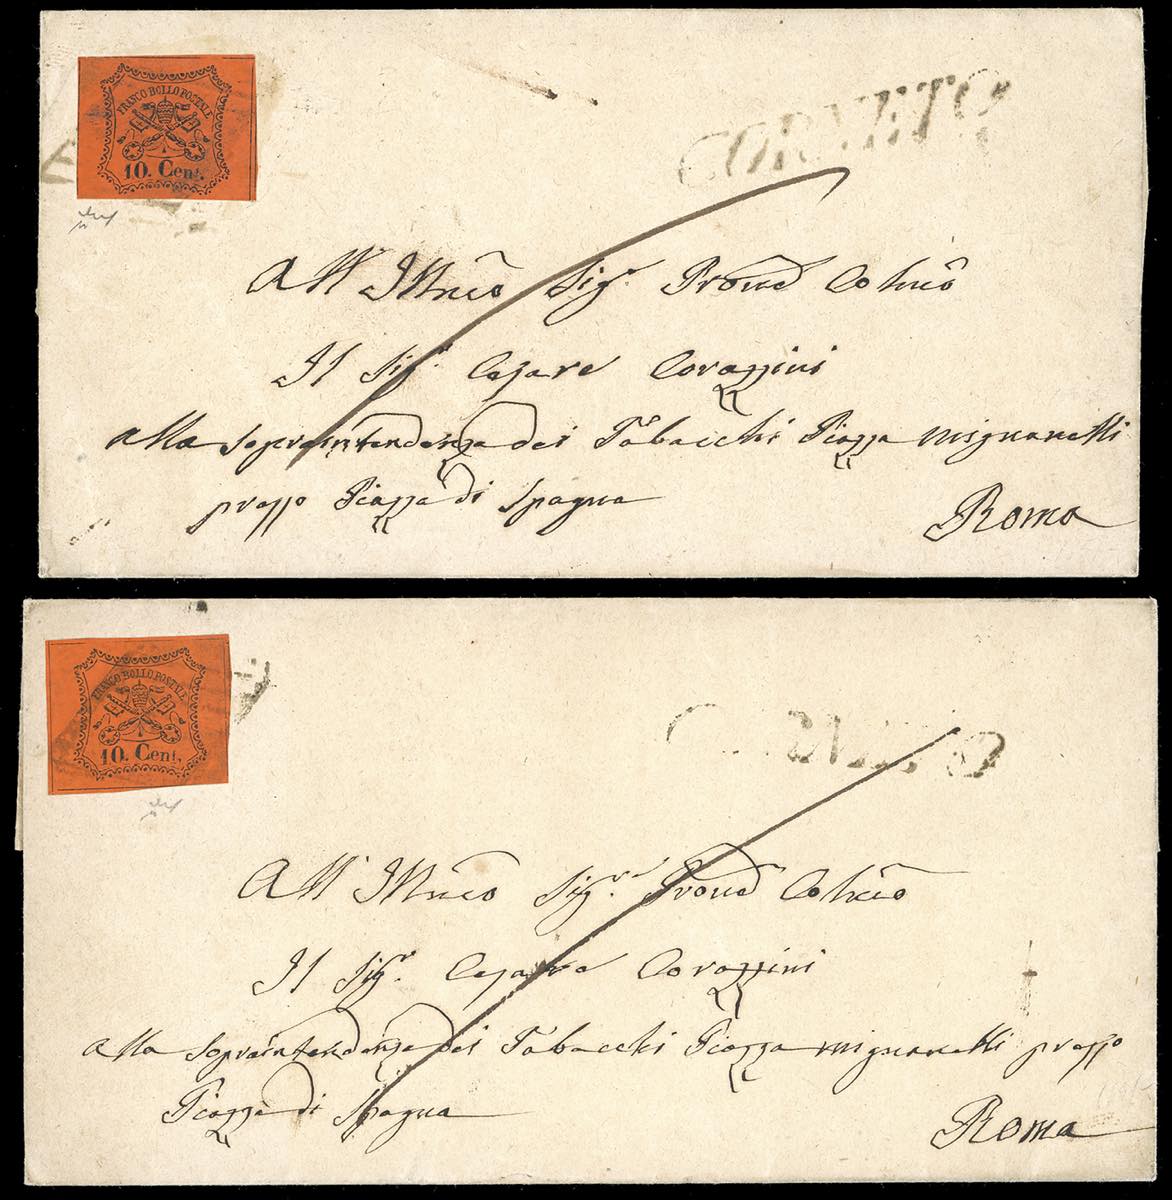 FRANCO BOLLO POSTALE
10. Cent.
CORNETO
All' Illmo Sigr. Prone Colmo
Il Sigr. Cesare Corazzini
alla Sopraintendenza dei Tabacchi Piazza Mignanelli
presso Piazza di Spagna
Roma
FRANCO BOLLO POSTALE
10. Cent.
CORNETO
All' Illmo Sigr. Prone Colmo
Il Sigr. Cesare Corazzini
alla Sopraintendenza dei Tabacchi Piazza Mignanelli presso
Piazza di Spagna
Roma